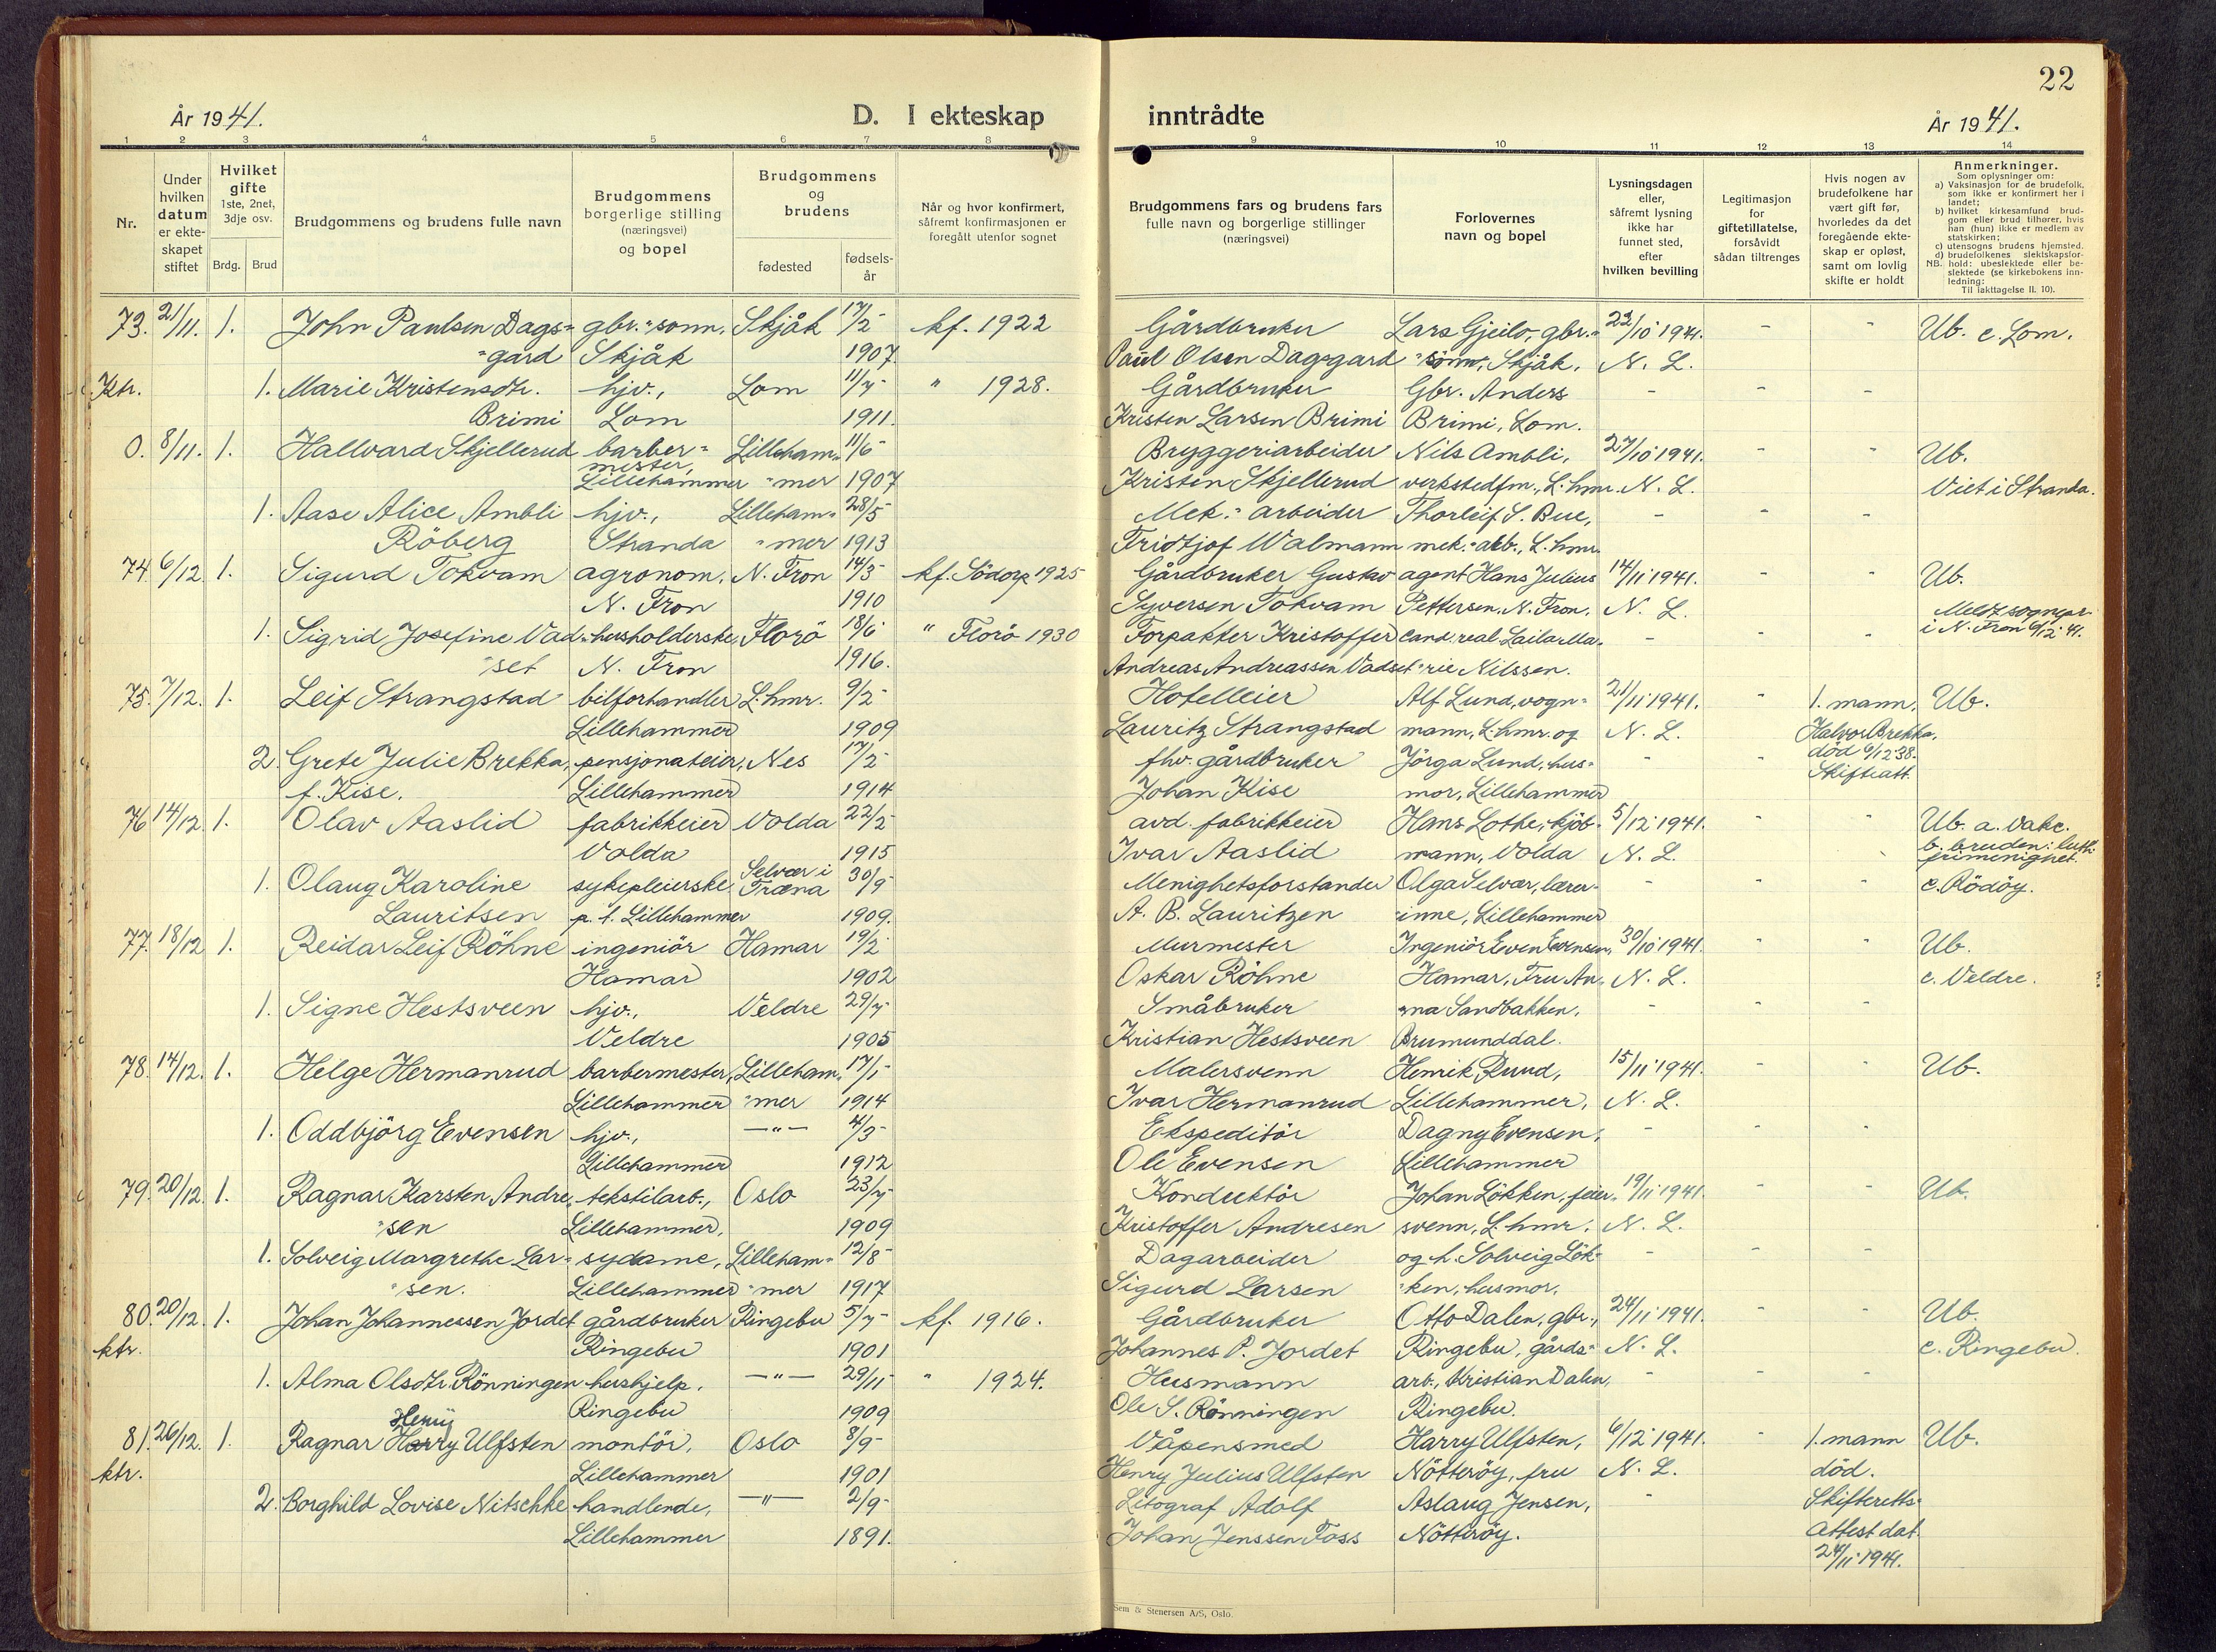 22
År 1941.
D. I ekteskap
inntrådte
År 1941.
1 2 3 4 5 6 7 8 9 10 11 12 13 14
Nr.
Under hvilken datum er ekteskapet stiftet
Hvilket gifte 1ste, 2net, 3dje osv.
Brdg. Brud
Brudgommens og brudens fulle navn
Brudgommens borgerlige stilling (næringsvei) og bopel
Brudgommens og brudens
fødested
fødselsår
Når og hvor konfirmert, såfremt konfirmasjonen er foregått utenfor sognet
Brudgommens fars og brudens fars fulle navn og borgerlige stillinger (næringsvei)
Forlovernes navn og bopel
Lysningsdagen eller, såfremt lysning ikke har funnet sted, efter hvilken bevilling
Legitimasjon for giftetillatelse, forsåvidt sådan tiltrenges
Hvis nogen av brudefolkene har vært gift før, hvorledes da det foregående ekteskap er opløst, samt om lovlig skifte er holdt
Anmerkninger.
Som oplysninger om:
a) Vaksinasjon for de brudefolk, som ikke er konfirmert her i landet;
b) hvilket kirkesamfund brudgom eller brud tilhører, hvis han (hun) ikke er medlem av statskirken;
c) utensogns brudens hjemsted.
d) brudefolkenes slektskapsforhold: ubeslektede eller beslektede (se kirkebokens innledning:
NB.
Til iakttagelse II. 10).
73. 21/11. 1. John Paulsen Dags= gbr.=sønn, Skjåk 17/2 kf. 1922 Gårdbruker Lars Gjeilo, gbr.= 22/10 1941. - - Ub. c. Lom.
=gard Skjåk 1907 Paul Olsen Dagsgard =sønn, Skjåk. N. L.
Ktr. 1. Marie Kristensdtr. hjv., Lom 11/7 " 1928. Gårdbruker Gbr. Anders - - -
Brimi Lom 1911. Kristen Larsen Brimi Brimi, Lom.
0. 8/11. 1. Hallvard Skjellerud barber= Lilleham= 11/6 Bryggeriarbeider Nils Ambli, 27/10 1941. - - Ub.
mester, Lillehammer =mer 1907 Kristen Skjellerud verkstedfm., L.hmr. N. L. Viet i Stranda.
1. Aase Alice Ambli hjv., Lilleham= 28/5 Mek.=arbeider Thorleif S. Bue, - - -
Röberg Stranda =mer 1913 Fridtjof Walmann mek.=arb., L.hmr.
74. 6/12 1. Sigurd Tokvam agronom, N. Fron 14/3 kf. Södorp 1925 Gårdbruker Gustav agent Hans Julius 14/11 1941. - - Ub.
N. Fron 1910 Syversen Tokvam Pettersen, N. Fron, N. L. Meldt sognepr.
1. Sigrid Josefine Vad= husholderske, Florö 18/6 " Florö 1930 Forpakter Kristoffer cand. real. Laila Ma= - - - i N. Fron 9/12 41.
=set N. Fron 1916. Andreas Andreassen Vadset =rie Nilssen.
75. 7/12. 1. Leif Strangstad bilforhandler L.hmr. 9/2 Hotelleier Alf Lund, vogn= 21/11 1941. - 1. mann, Ub.
Lillehammer 1909 Lauritz Strangstad mann, L.hmr. og N. L. Halvor Brekka,
2. Grete Julie Brekka, pensjonateier, Nes 17/2 fhv. gårdbruker Jörga Lund, hus= - - död 6/12 38.
f. Kise. Lillehammer 1914 Johan Kise mor, Lillehammer Skifteatt.
76. 14/12. 1. Olav Aaslid fabrikkeier Volda 22/2 avd. fabrikkeier Hans Lothe, kjöb= 5/12 1941. - - Ub. a. Vakc.
Volda 1915 Ivar Aaslid mann, Volda N. L. b. bruden: luth.
frimenighet.
1. Olaug Karoline sykepleierske Selvær i Træna 30/9 Menighetsforstander Olga Selvær, lærer= - - - c. Rödöy.
Lauritsen p. t. Lillehammer 1909. A. B. Lauritzen =inne, Lillehammer
77. 18/12 1. Reidar Leif Röhne ingeniör Hamar 19/2 Murmester Ingeniör Even Evensen, 30/10 1941. - - Ub.
Hamar 1902 Oskar Röhne Hamar, Fru An= N. L. c. Veldre.
1. Signe Hestsveen hjv., Veldre 29/7 Småbruker =na Sandbakken, - - -
Veldre 1905 Kristian Hestsveen Brumunddal.
78. 14/12. 1. Helge Hermanrud barbermester, Lilleham= 17/1 Malersvenn Henrik Ruud, 15/11 1941. - - Ub.
Lillehammer =mer 1914 Ivar Hermanrud Lillehammer, N. L.
1. Oddbjörg Evensen hjv., —"— 4/3 Ekspeditör Dagny Evensen, - - -
Lillehammer 1912 Ole Evensen Lillehammer
79. 20/12. 1. Ragnar Karsten Andre= tekstilarb., Oslo 23/7 Konduktör Johan Lökken, feier= 19/11 1941. - - Ub.
=sen Lillehammer. 1909 Kristoffer Andresen svenn, L.hmr. N. L.
1. Solveig Margrethe Lar= sydame, Lilleham= 12/8 Dagarbeider og h. Solveig Lök= - - -
=sen. Lillehammer =mer 1917 Sigurd Larsen =ken, husmor.
80. 20/12. 1. Johan Johannessen Jordet gårdbruker Ringebu 5/7 kf. 1916. Gårdbruker Otto Dalen, gbr., 24/11 1941. - - Ub.
ktr. Ringebu 1901 Johannes P. Jordet Ringebu, gårds= N. L. c. Ringebu.
1. Alma Olsdtr. Rönningen hushjelp. —"— 29/11 " 1924. Husmann arb., Kristian Dalen, - - -
Ringebu 1909 Ole S. Rönningen Ringebu.
Henry
81. 26/12. 1. Ragnar Harry Ulfsten montör, Oslo 8/9 Våpensmed Harry Ulfsten, 6/12 1941. - 1. mann Ub.
ktr. Lillehammer 1901 Henry Julius Ulfsten Nötteröy, fru N. L. död.
2. Borghild Lovise Nitschke handlende, —"— 2/9 Litograf Adolf Aslaug Jensen, - Skifteretts=
Lillehammer 1891. Johan Jenssen Foss Nötteröy. attest dat.
24/11 1941.
Sem & Stenersen A/S, Oslo.